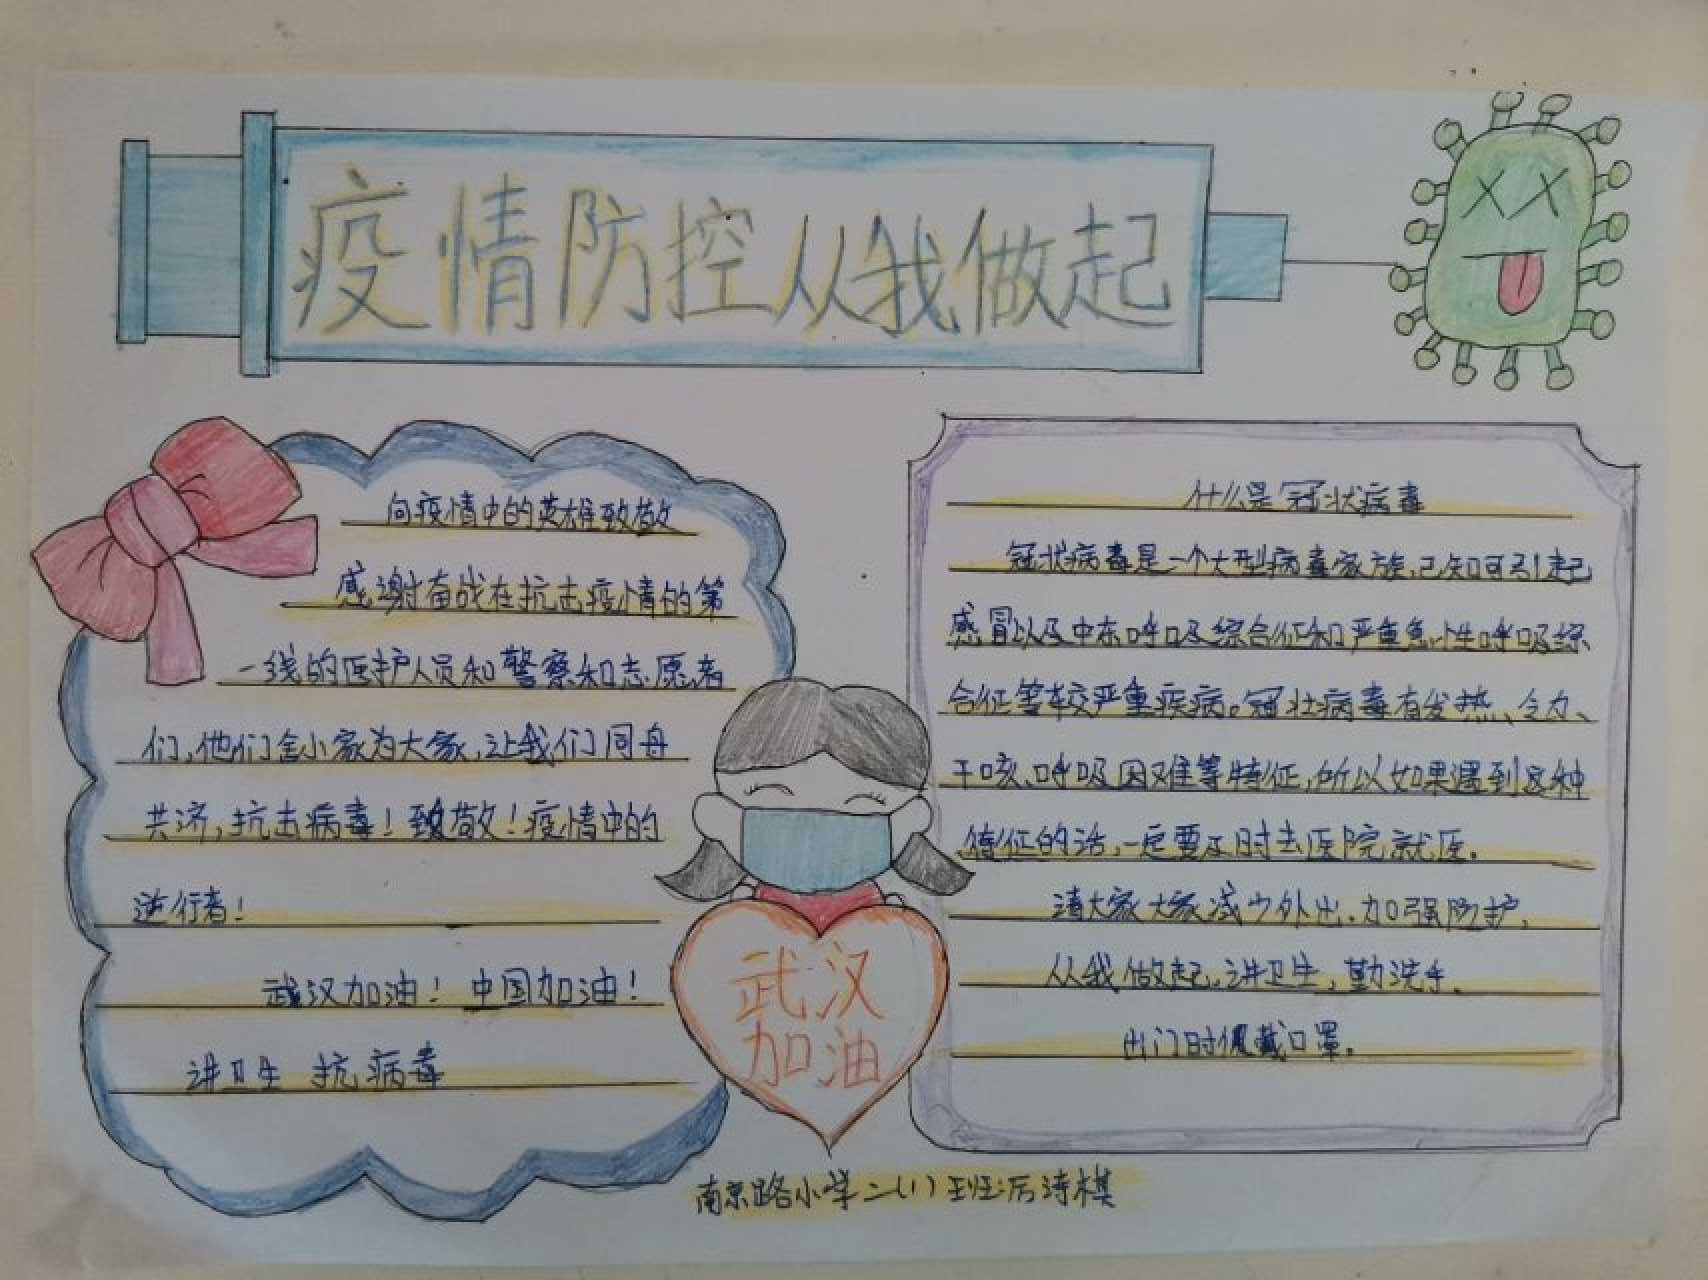 疫情防控从我做起
向疫情中的英雄致敬
感谢奋战在抗击疫情的第
一线的医护人员和警察和志愿者
们,他们舍小家为大家,让我们同舟
共济,抗击病毒!致敬!疫情中的
逆行者!
武汉加油!中国加油!
讲卫生 抗病毒
武汉
加油
什么是冠状病毒
冠状病毒是一个大型病毒家族,已知可引起
感冒以及中东呼吸综合征和严重急性呼吸综
合征等较严重疾病。冠状病毒有发热、乏力、
干咳、呼吸困难等特征,所以如果遇到这种
特征的话,一定要及时去医院就医。
请大家大家减少外出,加强防护,
从我做起,讲卫生,勤洗手,
出门时佩戴口罩。
南京路小学二(1)班厉诗棋